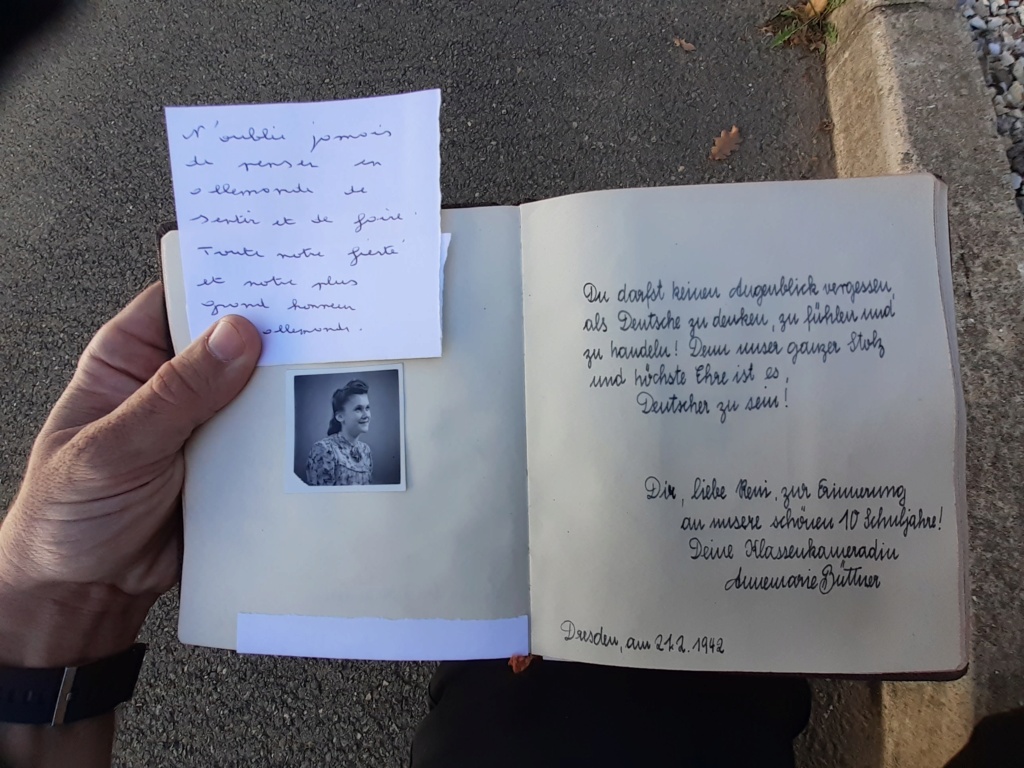 N'oublie jamais
de penser en
allemande de
sentir et de faire!
Toute notre fierté
et notre plus
grand honneur
allemands.
Du darfst keinen Augenblick vergessen,
als Deutsche zu denken, zu fühlen und
zu handeln! Denn unser ganzer Stolz
und höchste Ehre ist es,
Deutscher zu sein!
Dir, liebe Reni, zur Erinnerung
an unsere schönen 10 Schuljahre!
Deine Klassenkameradin
Annemarie Büttner
Dresden, am 21.2.1942